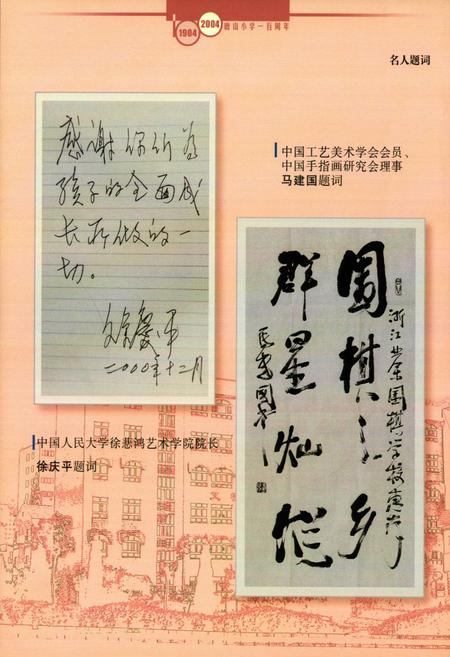 1904 2004 唐山小学一百周年
名人题词
感谢你们为
孩子的全面成
长所做的一
切。
徐庆平
二000年十二月
中国工艺美术学会会员、
中国手指画研究会理事
马建国题词
围棋之乡
群星灿烂
中国人民大学徐悲鸿艺术学院院长
徐庆平题词